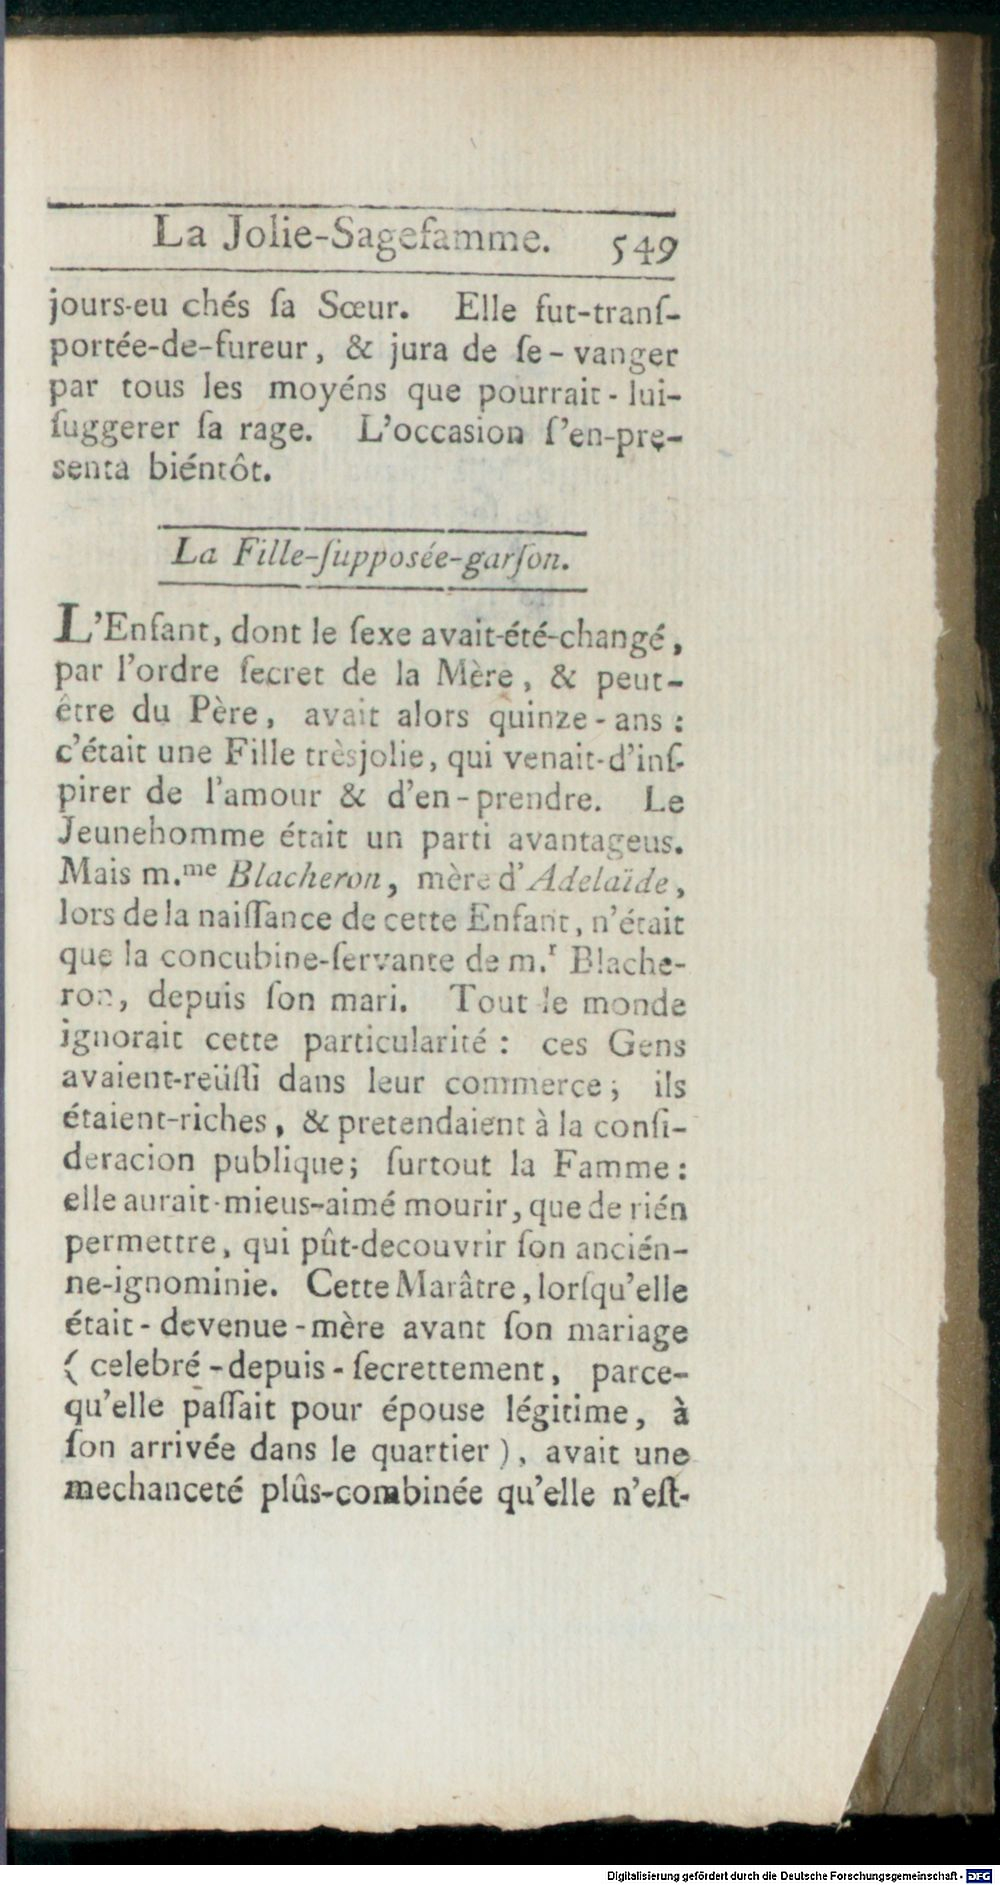 La Jolie-Sagefamme. 549
jours-eu chés ſa Sœur. Elle fut-tranſ-
portée-de-fureur, & jura de ſe-vanger
par tous les moyéns que pourrait-lui-
ſuggerer ſa rage. L'occasion ſ'en-pre-
senta biéntôt.
La Fille-ſupposée-garſon.
L'Enfant, dont le ſexe avait-été-changé,
par l'ordre ſecret de la Mère, & peut-
être du Père, avait alors quinze-ans :
c'était une Fille trèsjolie, qui venait-d'inſ-
pirer de l'amour & d'en-prendre. Le
Jeunehomme était un parti avantageus.
Mais m.me Blacheron, mère d'Adelaïde,
lors de la naiſſance de cette Enfant, n'était
que la concubine-ſervante de m.r Blache-
ron, depuis ſon mari. Tout le monde
ignorait cette particularité : ces Gens
avaient-reüſſi dans leur commerce; ils
étaient-riches, & pretendaient à la conſi-
deracion publique; ſurtout la Famme :
elle aurait-mieus-aimé mourir, que de rién
permettre, qui pût-decouvrir ſon ancién-
ne-ignominie. Cette Marâtre, lorſqu'elle
était-devenue-mère avant ſon mariage
( celebré-depuis-ſecrettement, parce-
qu'elle paſſait pour épouse légitime, à
ſon arrivée dans le quartier ), avait une
mechanceté plûs-combinée qu'elle n'eſt-
Digitalisierung gefördert durch die Deutsche Forschungsgemeinschaft - DFG